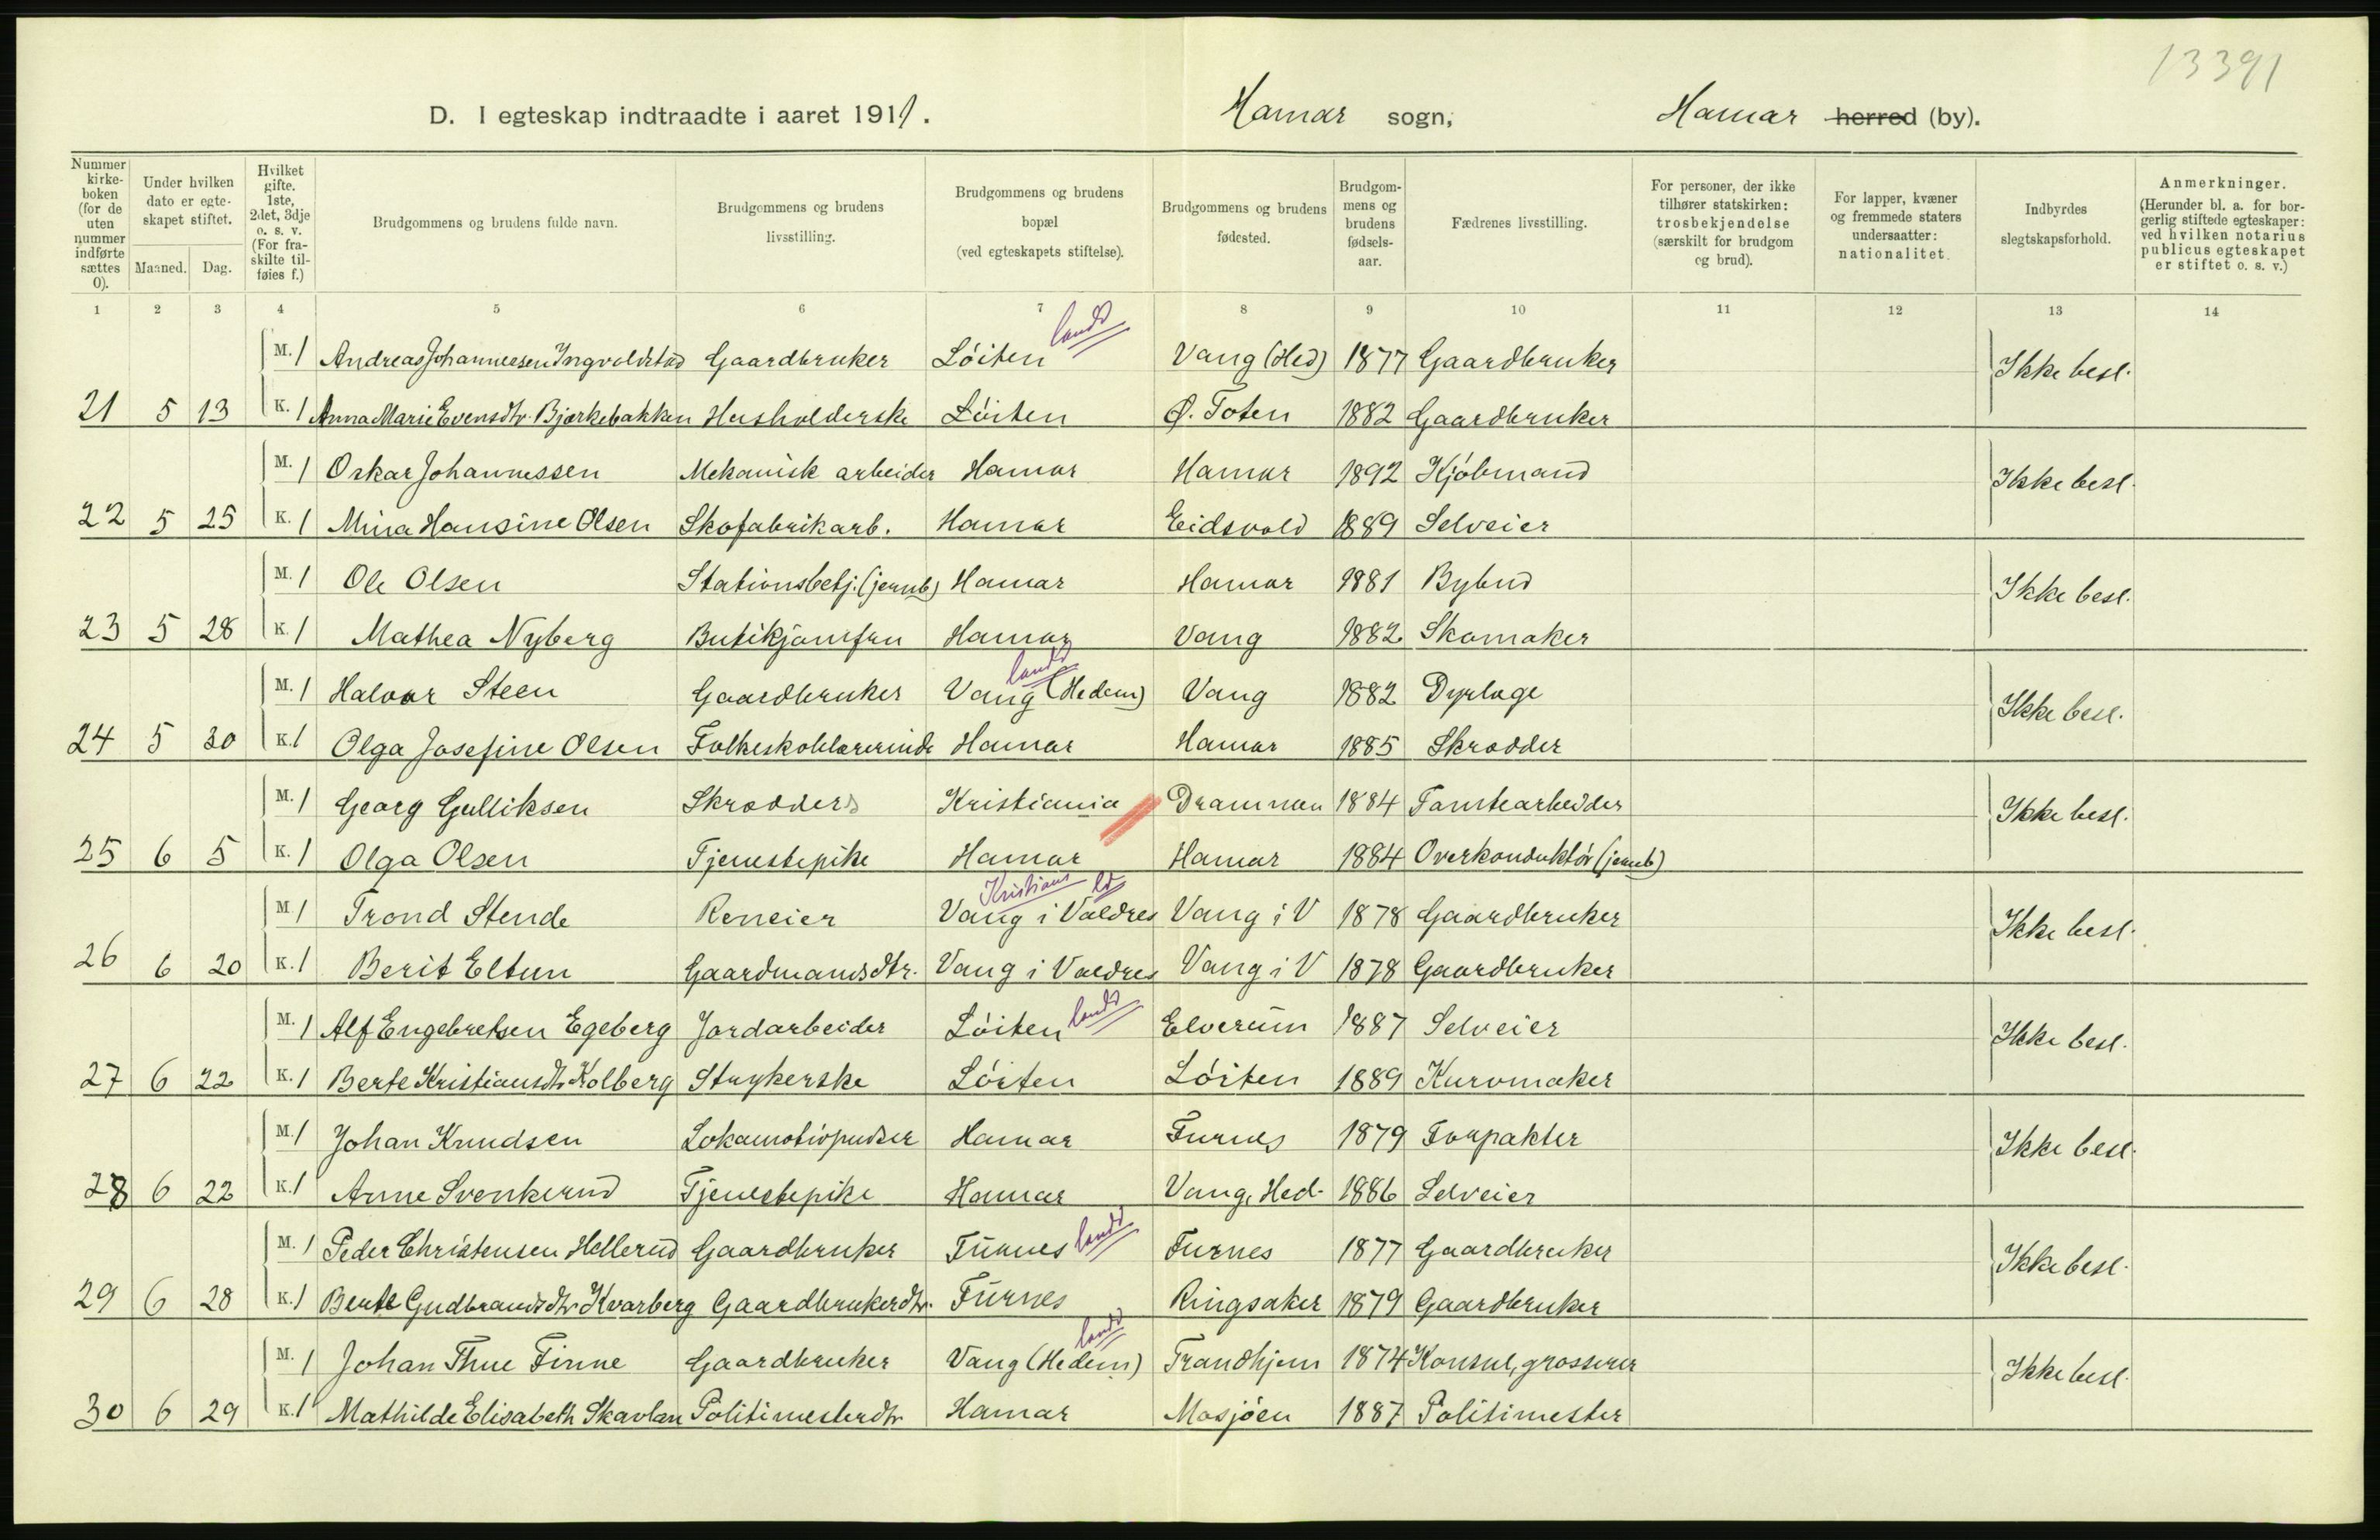 13391
D. I egteskap indtraadte i aaret 1911. Hamar sogn, Hamar herred (by).
Nummer kirke-boken (for de uten nummer indførte sættes 0).
Under hvilken dato er egte-skapet stiftet.
Maaned. Dag.
Hvilket gifte. 1ste, 2det, 3dje o. s. v. (For fra-skilte til-føies f.)
Brudgommens og brudens fulde navn.
Brudgommens og brudens livsstilling.
Brudgommens og brudens bopæl (ved egteskapets stiftelse).
Brudgommens og brudens fødested.
Brudgom-mens og brudens fødsels-aar.
Fædrenes livsstilling.
For personer, der ikke tilhører statskirken: trosbekjendelse (særskilt for brudgom og brud).
For lapper, kvæner og fremmede staters undersaatter: nationalitet.
Indbyrdes slegtskapsforhold.
Anmerkninger. (Herunder bl. a. for bor-gerlig stiftede egteskaper: ved hvilken notarius publicus egteskapet er stiftet o. s. v.)
1 2 3 4 5 6 7 8 9 10 11 12 13 14
landd
M. 1 Andreas Johannessen Ingvoldstad Gaardbruker Löiten Vang (Hed) 1877 Gaardbruker Ikke besl.
21 5 13 K. 1 Anna Marie Evensdtr. Bjørkebakken Husholderske Löiten Ø. Toten 1882 Gaardbruker
M. 1 Oskar Johannessen Mekanisk arbeider Hamar Hamar 1892 Kjöbmand Ikke besl.
22 5 25 K. 1 Mina Hansine Olsen Skofabrikarb. Hamar Eidsvold 1889 Selveier
M. 1 Ole Olsen Stationsbetj. (jernb) Hamar Hamar 1881 Bybud Ikke besl.
23 5 28 K. 1 Mathea Nyberg Butikjomfru Hamar Vang 1882 Skomaker
landd
M. 1 Halvor Steen Gaardbruker Vang (Hedem) Vang 1882 Dyrlæge Ikke besl.
24 5 30 K. 1 Olga Josefine Olsen Folkeskolelærerinde Hamar Hamar 1885 Skrædder
M. 1 Georg Gulliksen Skrædders Kristiania Drammen 1884 Tomtearbeider Ikke besl.
25 6 5 K. 1 Olga Olsen Tjenestepike Hamar Hamar 1884 Overkonduktör (jernb)
Kristians ld
M 1 Trond Stende Reneier Vang i Valdres Vang i V 1878 Gaardbruker Ikke besl.
26 6 20 K. 1 Berit Eltun Gaardmandsdtr. Vang i Valdres Vang i V 1878 Gaardbruker
M. 1 Alf Engebretsen Egeberg Jordarbeider Löiten landd Elverum 1887 Selveier Ikke besl.
27 6 22 K. 1 Berte Kristiansdtr Kolberg Strykerske Löiten Löiten 1889 Kurvmaker
M. 1 Johan Knudsen Lokomotivpudser Hamar Furnes 1879 Forpakter Ikke besl.
28 6 22 K. 1 Anne Svenkerud Tjenestepike Hamar Vang, Hed. 1886 Selveier
M. 1 Peder Christensen Hellerud Gaardbruker Furnes landd Furnes 1877 Gaardbruker Ikke besl.
29 6 28 K. 1 Berte Gudbrandsdtr Kvarberg Gaardbrukerdtr. Furnes Ringsaker 1879 Gaardbruker
landd
M. 1 Johan Thue Finne Gaardbruker Vang (Hedem) Trondhjem 1874 Konsul, grosserer Ikke besl.
30 6 29 K. 1 Mathilde Elisabeth Skavlan Politimesterdtr Hamar Mosjöen 1887 Politimester